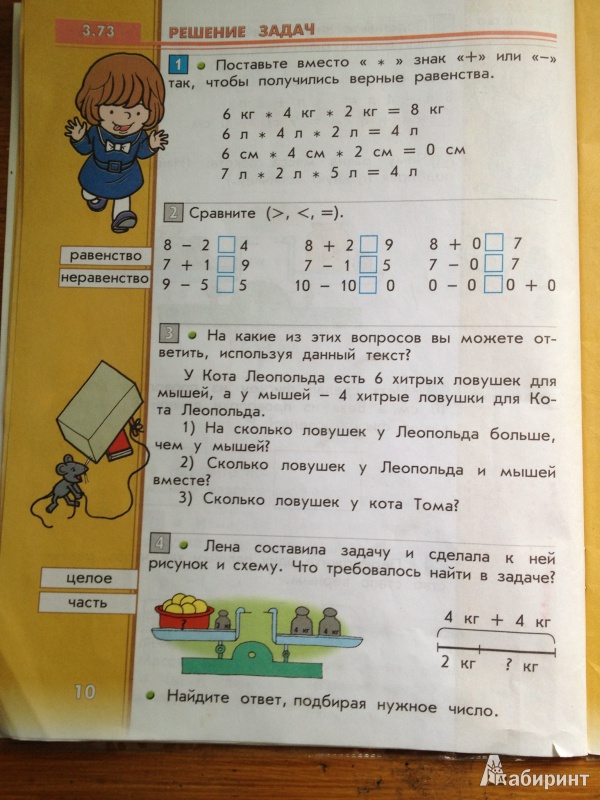 3.73 РЕШЕНИЕ ЗАДАЧ
1 • Поставьте вместо « * » знак «+» или «−»
так, чтобы получились верные равенства.
6 кг * 4 кг * 2 кг = 8 кг
6 л * 4 л * 2 л = 4 л
6 см * 4 см * 2 см = 0 см
7 л * 2 л * 5 л = 4 л
2 Сравните (>, <, =).
равенство
неравенство
8 − 2 □ 4 8 + 2 □ 9 8 + 0 □ 7
7 + 1 □ 9 7 − 1 □ 5 7 − 0 □ 7
9 − 5 □ 5 10 − 10 □ 0 0 − 0 □ 0 + 0
3 • На какие из этих вопросов вы можете от-
ветить, используя данный текст?
У Кота Леопольда есть 6 хитрых ловушек для
мышей, а у мышей – 4 хитрые ловушки для Ко-
та Леопольда.
1) На сколько ловушек у Леопольда больше,
чем у мышей?
2) Сколько ловушек у Леопольда и мышей
вместе?
3) Сколько ловушек у кота Тома?
4 • Лена составила задачу и сделала к ней
рисунок и схему. Что требовалось найти в задаче?
целое
часть
? 4 4
4 кг + 4 кг
2 кг ? кг
• Найдите ответ, подбирая нужное число.
10
Лабиринт